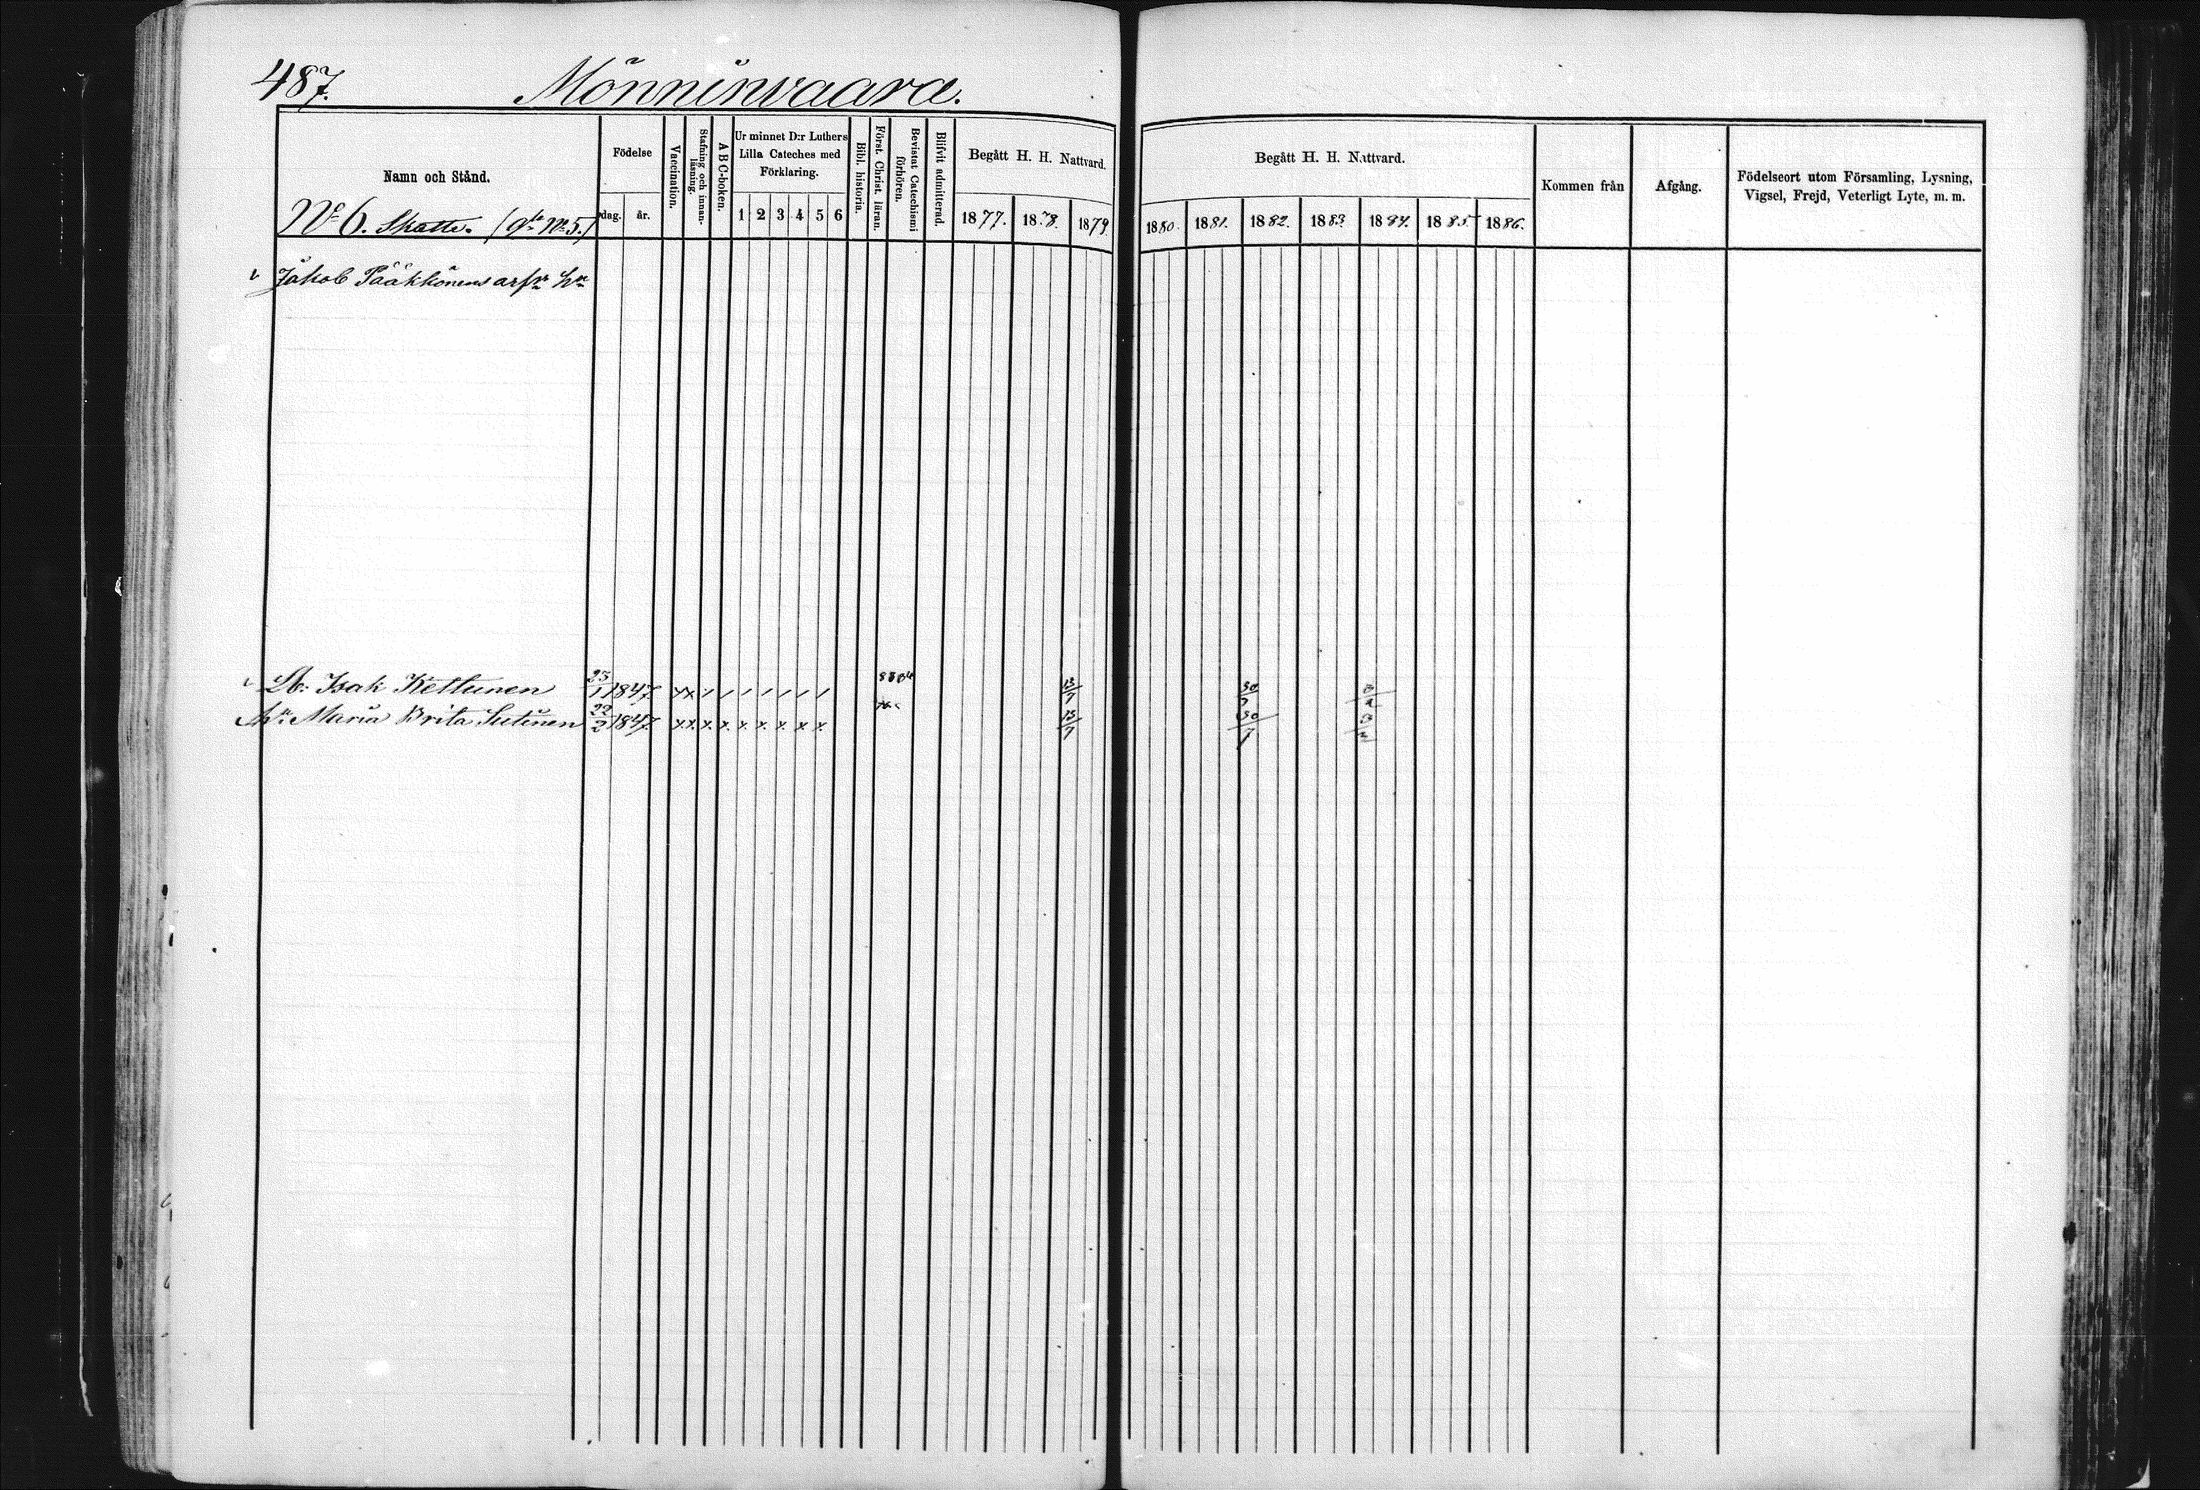 487.
Mönninvaara.
Namn och Stånd.
Födelse
dag. år.
Vaccination.
Stafning och innan-
läsning.
A B C-boken.
Ur minnet D:r Luthers
Lilla Cateches med
Förklaring.
1 2 3 4 5 6
Bibl. historia.
Förest. Christ. läran.
Bevistat Catechismi
förhören.
Blifvit admitterad.
Begått H. H. Nattvard.
1877. 1878. 1879
Begått H. H. Nattvard.
1880. 1881. 1882. 1883. 1884. 1885. 1886.
Kommen från
Afgång.
Födelseort utom Församling, Lysning,
Vigsel, Frejd, Veterligt Lyte, m. m.
No 6. Skatte. (gla No 5.)
Jakob Pääkkönens
Isak Kettunen 23/1 1847. x x / / / / / / / 13/7
Maria Brita Sutinen 22/2 1847. x x x x x x x x x 13/7 30/7